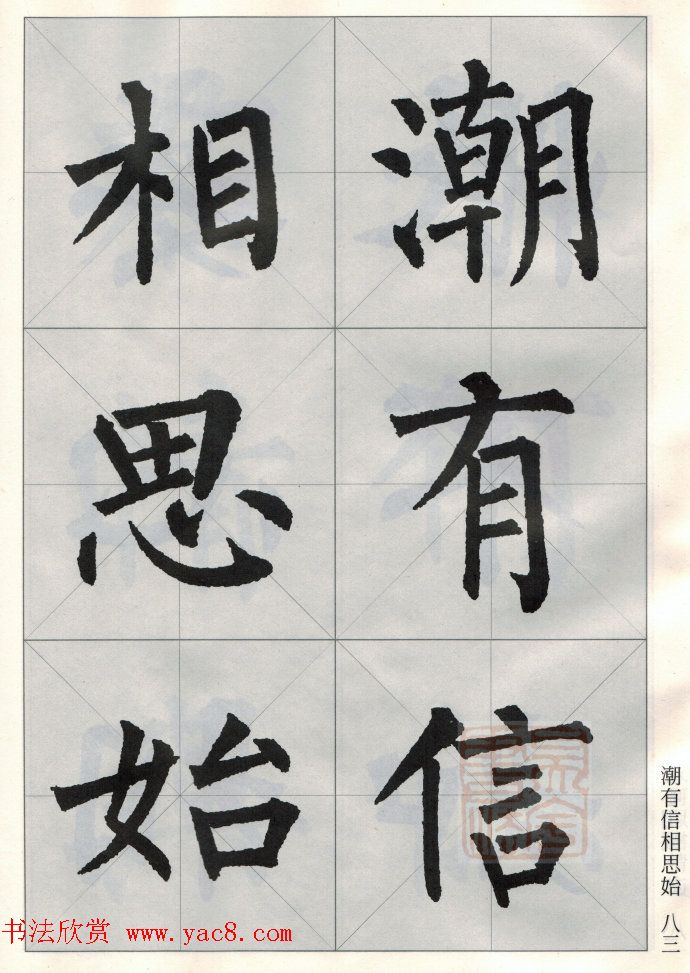 潮有信
相思始
潮有信相思始 八三
书法欣赏 www.yac8.com